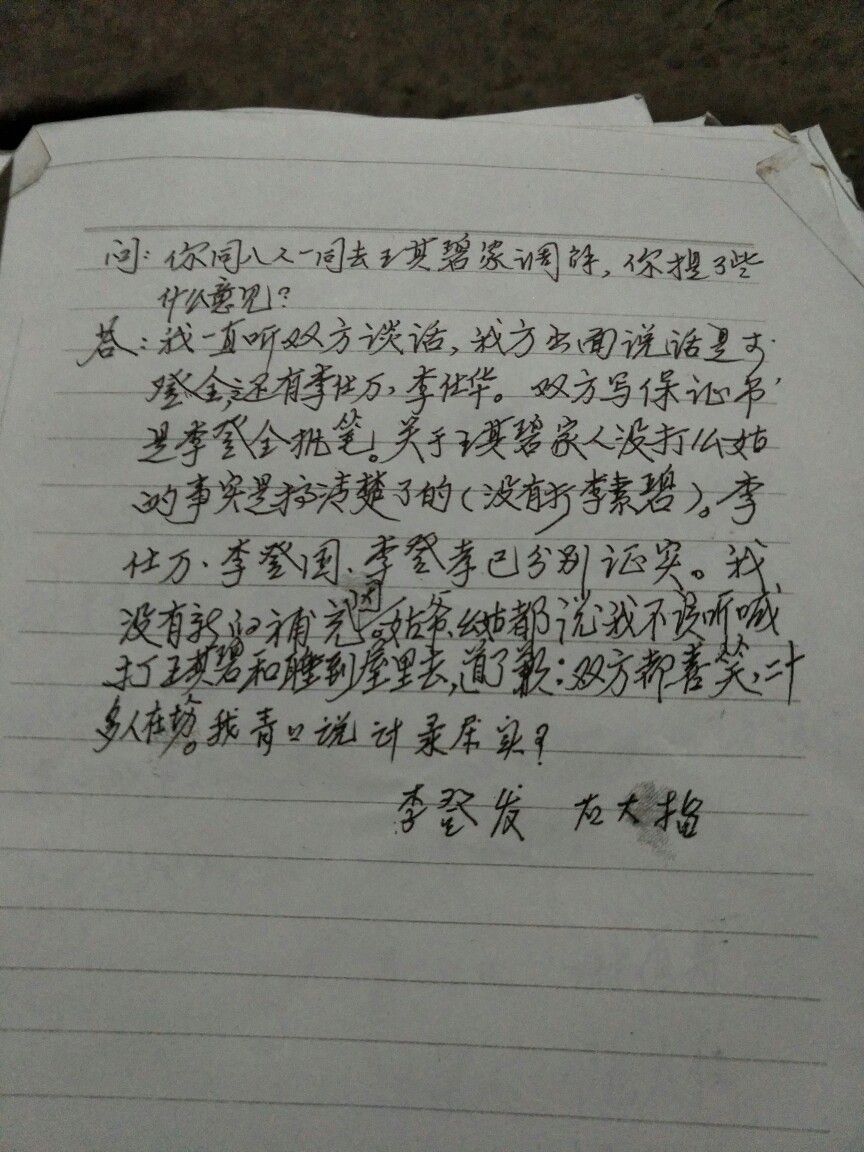 问：你同八人一同去王其碧家调解，你提了些
什么意见？
答：我一直听双方谈话，我方出面说话是李
登全，还有李仕万、李仕华。双方写保证书，
是李登全执笔。关于王其碧家人没打么姑
的事实是搞清楚了的（没有打李素碧）。李
仕万、李登国、李登孝已分别证实。我
没有新的补充。因姑爷、幺姑都说我不该听喊
打王其碧和睡到屋里去，道了歉：双方都喜笑，二十
多人在场。我青口说计录属实？
李登发 右大指